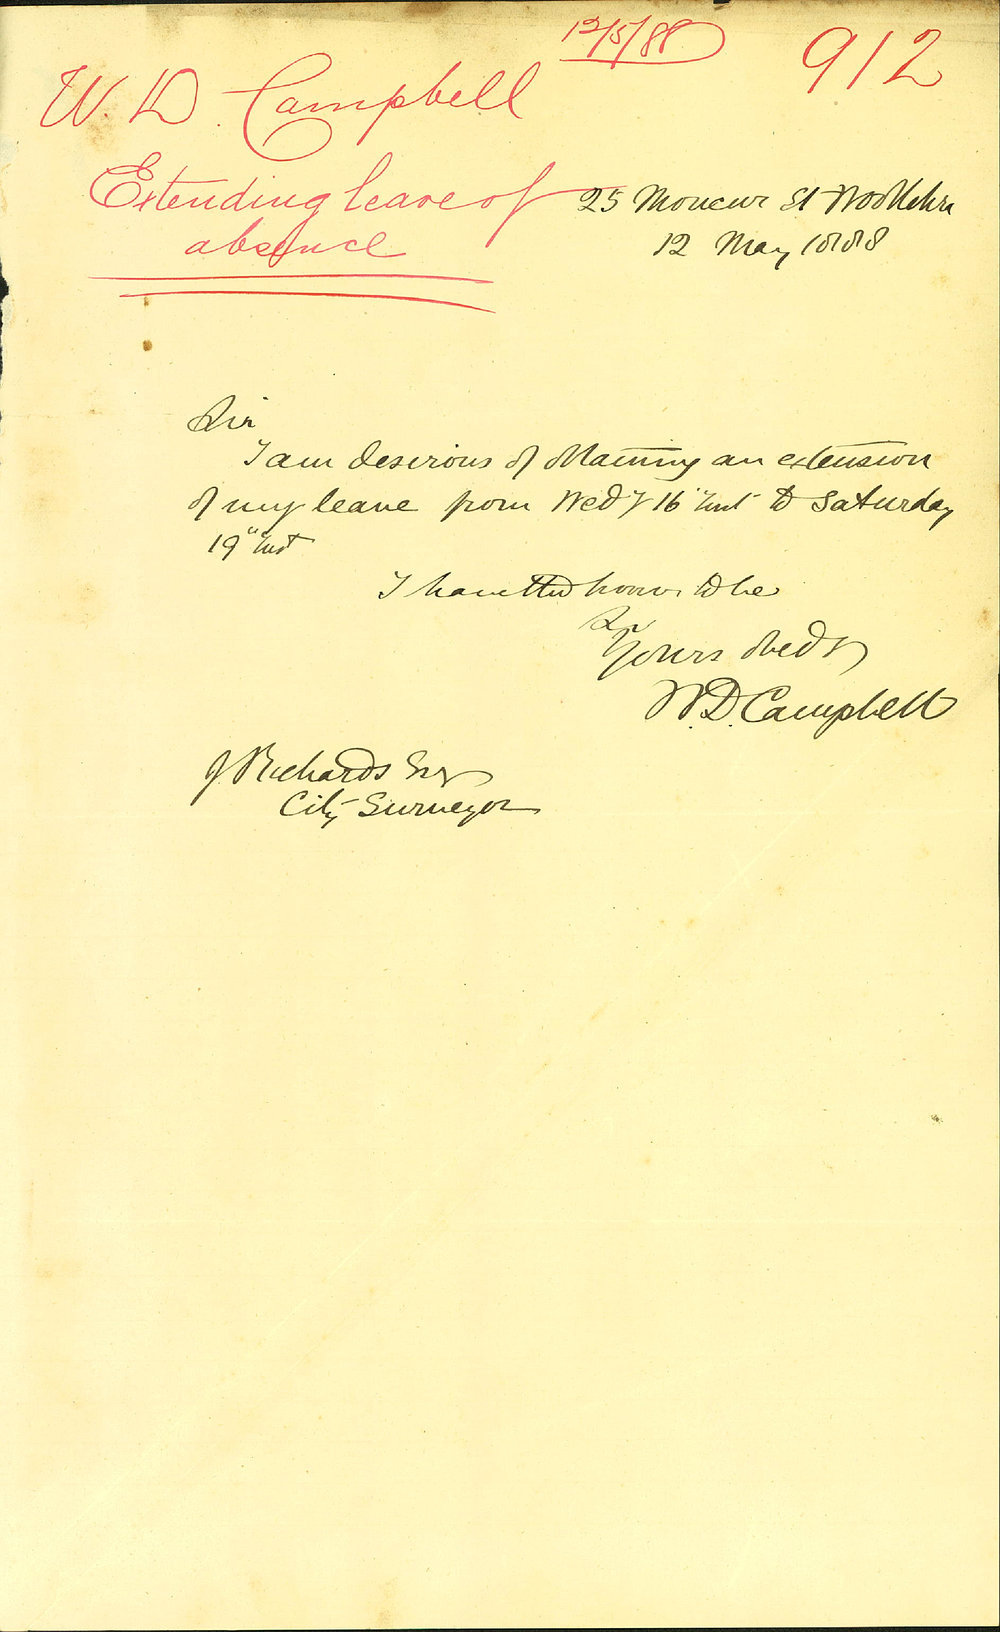 12/5/88
912
W. D. Campbell
Extending leave of
absence
25 Moncur St Woollahra
12 May 1888
Sir
I am desirous of obtaining an extension
of my leave from Wedy 16" inst to Saturday
19" inst
I have the honor to be
Sir
Yours obedt
W. D. Campbell
J Richards Esq
City Surveyor